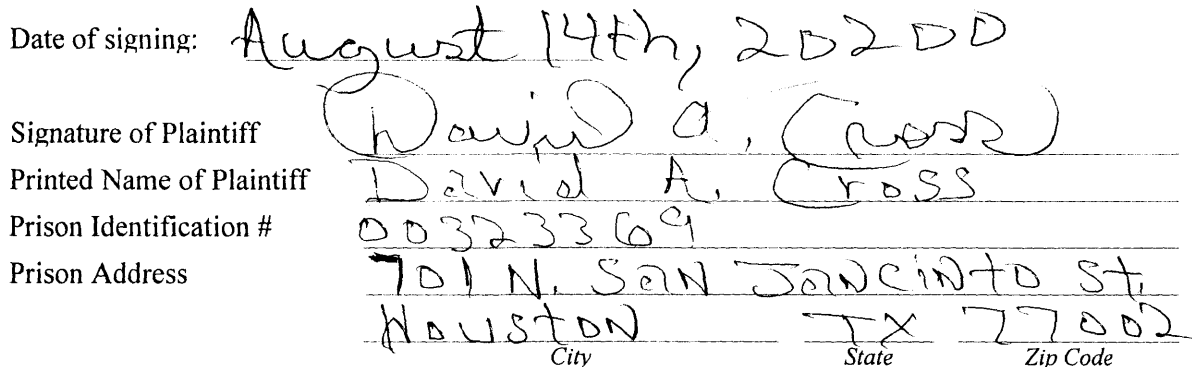 Date of signing: August 14th, 20200
Signature of Plaintiff David A. Cross
Printed Name of Plaintiff David A. Cross
Prison Identification # 00323369
Prison Address 701 N. San Jancinto St.
Houston TX 77002
City State Zip Code